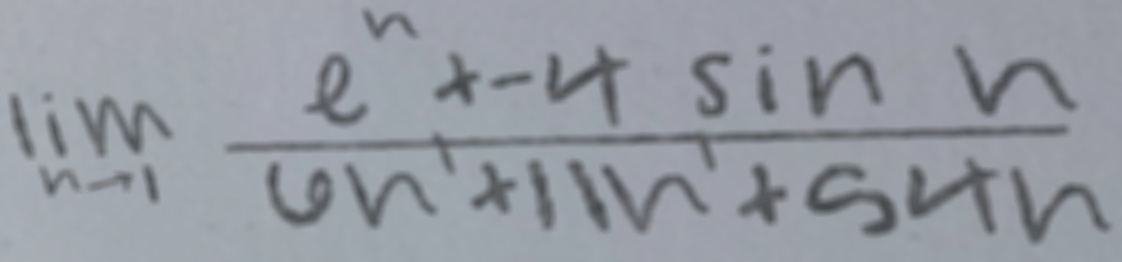 \lim_{n \to 1} \frac{e^n + -4 \sin n}{6n^1 + 11n^1 + 54n}